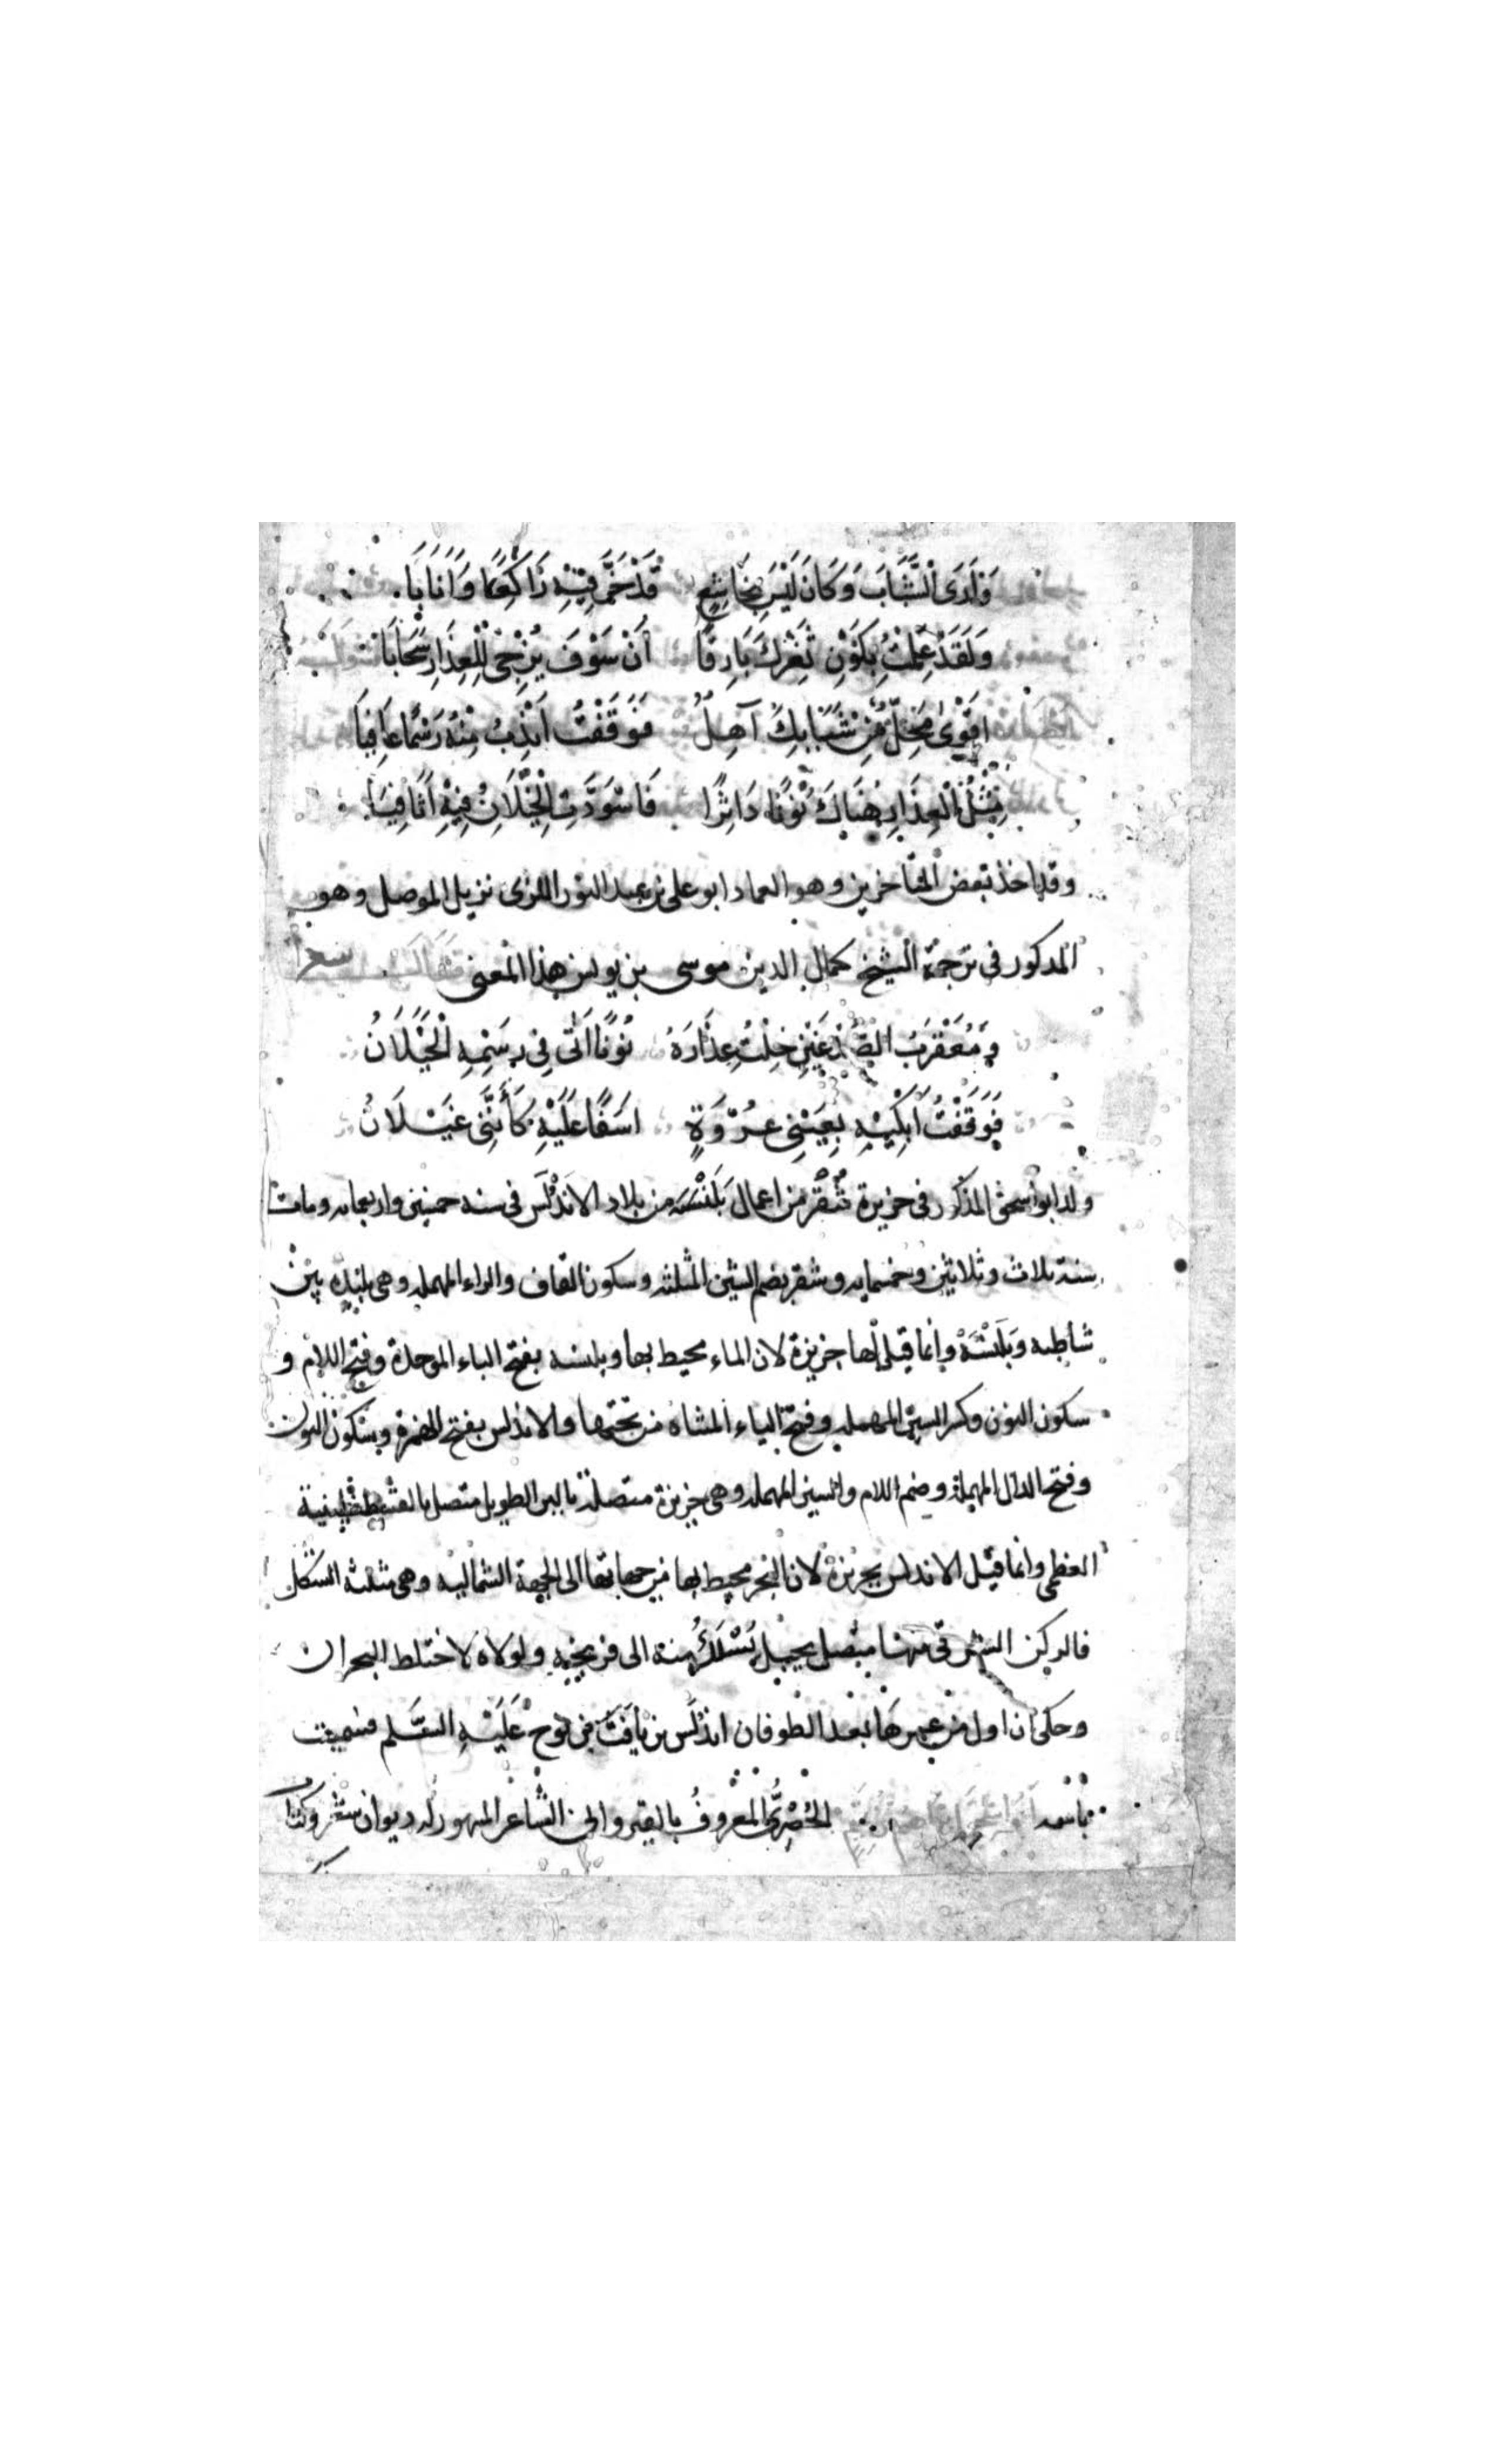 وَأَرَى الشَّبَابَ وَكَانَ لَيْسَ بِخَاشِعٍ قَدْ خَرَّ فِيْهِ رَاكِعًا وَأَنَابَا
وَلَقَدْ عَلِمْتُ بِكَوْنِ ثَغْرِكَ بَارِقًا أَنْ سَوْفَ يُزْجِي لِلْعِذَارِ سَحَابَا
اقْوَى مَحَلٌّ مِنْ شَبَابِكَ آهِلٌ فَوَقَفْتُ اَنْدُبُ مِنْهُ رَسْمًا عَافِيَا
مِثْلُ الْعِذَارِ هُنَاكَ نُؤْيًا دَاثِرًا فَاسْوَدَّتِ الْخِيْلَانُ فِيْهِ اَثَافِيَا
وقد اخذ بعض المتاخرين وهو العماد ابو علي بن عبد النور اللزى نزيل الموصل وهو
المذكور في ترجمة الشيخ كمال الدين موسى بن يونس هذا المعنى شعرا
وَمُعَقْرَبُ الصُّدْغَيْنِ خِلْتُ عِذَارَهُ نُؤيًا اَتَى فِي رَسْمِهِ الْخَيْلَانُ
فَوَقَفْتُ اَبْكِيْهِ بِعَيْنِى عُرْوَةٍ اسَفًا عَلَيْهِ كَأَنَّنِى غَيْلَانُ
ولد ابو اسحق المذكور في جزيرة شُقْر من اعمال بَلَنْسَيه من بلاد الاندلس في سنه خمسين واربعمايه ومات
سنة ثلاث وثلاثين وخمسمايه وشقر بضم الشين المثلثه وسكون القاف والراء المهمله وهى بليده بين
شاطبه وبَلَنْسَيَهْ وانما قيل لها جزيزة لان الماء محيط بها وبلنسيه بفتح الباء الموحدة وفتح اللام و
سكون النون وكسر السين المهمله وفتح الياء المثناه من تحتها والاندلس بفتح الهمزة وسكون النون
وفتح الدال المهملة وضم اللام والسين المهمله وهى جزيزة متصلة بالبر الطويل متصل بالقسطنطينية
العظمى وانما قيل الاندلس بجزيزة لان البحر محيط بها من جهاتها الى الجهة الشماليه وهى مثلثة الشكل
فالركن الشرقى منها متصل بجبل يُسْلَكُ منه الى فرنجيه ولولاه لاختلط البحران
وحكى ان اول من عمرها بعد الطوفان اندلَس بن يافَثَ بن نوحْ عَلَيْهِ السَّلم فسميت
باسمه الحُصْرِىُّ المعْروفُ بالقيروانى الشاعر المشهور له ديوان شعر وكتاب